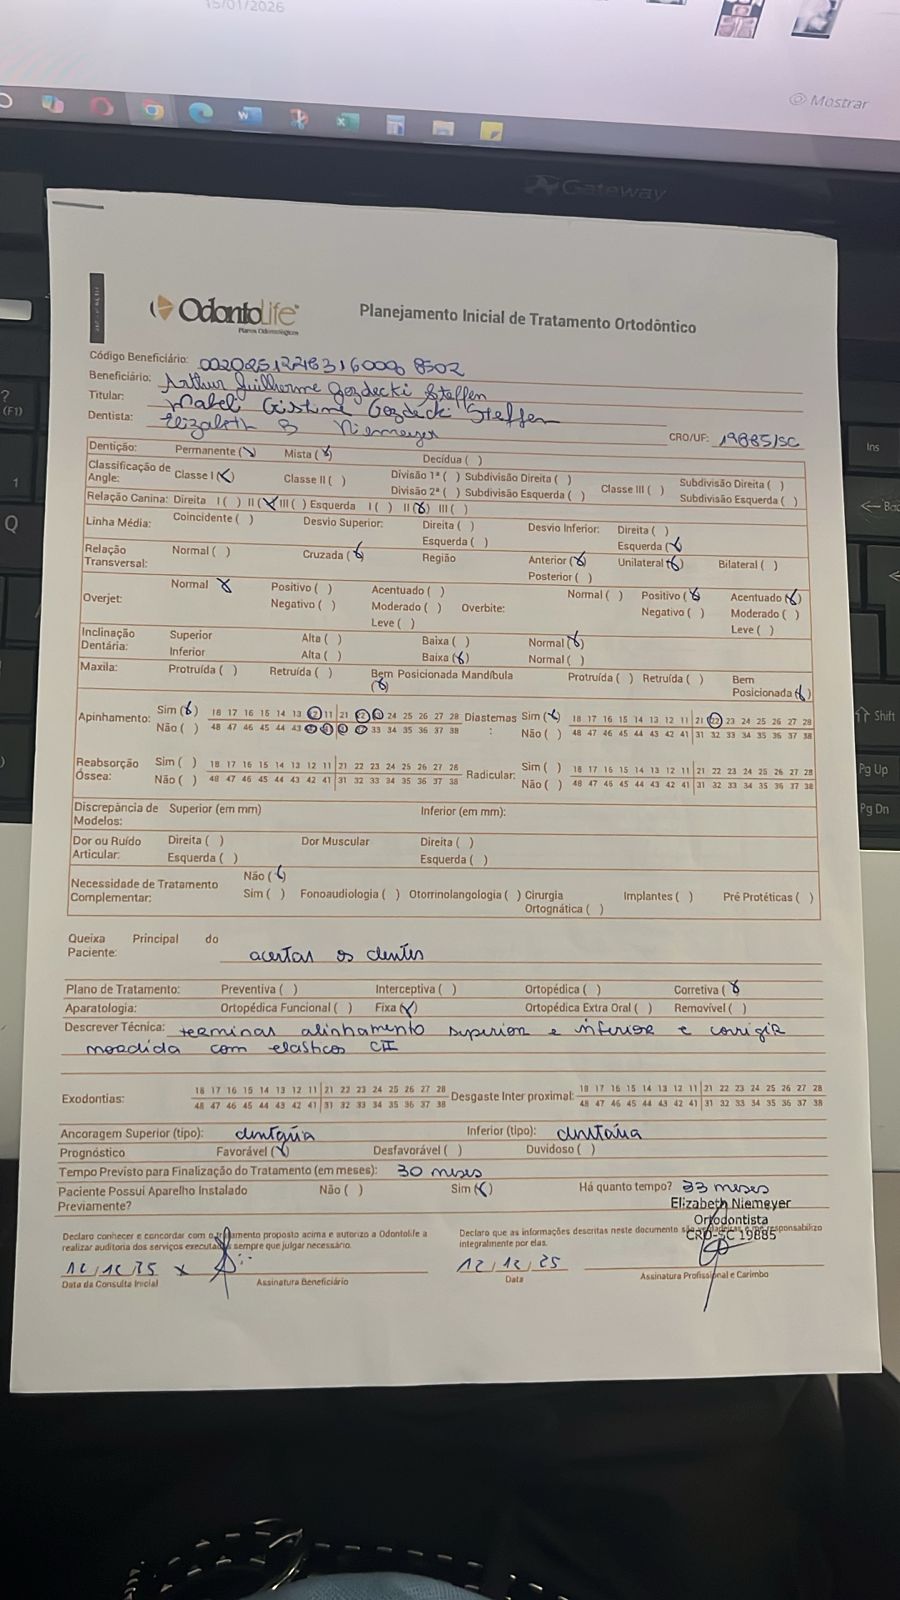 15/01/2026
Mostrar
Gateway
OdontoLife
Planos Odontológicos
Planejamento Inicial de Tratamento Ortodôntico
Código Beneficiário:
Beneficiário: Arthur Guilherme Gozdecki Steffen
Titular: Mabeli Cristine Gozdecki Steffen
Dentista: Elizabeth B Niemeyer CRO/UF: 19885/SC
Dentição: Permanente (x) Mista (x) Decídua ( )
Classificação de Angle: Classe I (x) Classe II ( ) Divisão 1ª ( ) Subdivisão Direita ( ) Classe III ( ) Subdivisão Direita ( )
Divisão 2ª ( ) Subdivisão Esquerda ( ) Subdivisão Esquerda ( )
Relação Canina: Direita I ( ) II (x) III ( ) Esquerda I ( ) II (x) III ( )
Linha Média: Coincidente ( ) Desvio Superior: Direita ( ) Desvio Inferior: Direita ( )
Esquerda ( ) Esquerda (x)
Relação Transversal: Normal ( ) Cruzada (x) Região Anterior (x) Unilateral (x) Bilateral ( )
Posterior ( )
Overjet: Normal x Positivo ( ) Acentuado ( ) Overbite: Normal ( ) Positivo (x) Acentuado (x)
Negativo ( ) Moderado ( ) Negativo ( ) Moderado ( )
Leve ( ) Leve ( )
Inclinação Dentária: Superior Alta ( ) Baixa ( ) Normal (x)
Inferior Alta ( ) Baixa (x) Normal ( )
Maxila: Protruída ( ) Retruída ( ) Bem Posicionada (x) Mandíbula Protruída ( ) Retruída ( ) Bem Posicionada (x)
Apinhamento: Sim (x) 18 17 16 15 14 13 12 11 21 22 23 24 25 26 27 28 Diastemas: Sim (x) 18 17 16 15 14 13 12 11 21 22 23 24 25 26 27 28
Não ( ) 48 47 46 45 44 43 42 41 31 32 33 34 35 36 37 38 Não ( ) 48 47 46 45 44 43 42 41 31 32 33 34 35 36 37 38
Reabsorção Óssea: Sim ( ) 18 17 16 15 14 13 12 11 21 22 23 24 25 26 27 28 Radicular: Sim ( ) 18 17 16 15 14 13 12 11 21 22 23 24 25 26 27 28
Não ( ) 48 47 46 45 44 43 42 41 31 32 33 34 35 36 37 38 Não ( ) 48 47 46 45 44 43 42 41 31 32 33 34 35 36 37 38
Discrepância de Modelos: Superior (em mm) Inferior (em mm):
Dor ou Ruído Articular: Direita ( ) Dor Muscular Direita ( )
Esquerda ( ) Esquerda ( )
Necessidade de Tratamento Complementar: Não (x)
Sim ( ) Fonoaudiologia ( ) Otorrinolangologia ( ) Cirurgia Ortognática ( ) Implantes ( ) Pré Protéticas ( )
Queixa Principal do Paciente: acertar os dentes
Plano de Tratamento: Preventiva ( ) Interceptiva ( ) Ortopédica ( ) Corretiva (x)
Aparatologia: Ortopédica Funcional ( ) Fixa (x) Ortopédica Extra Oral ( ) Removível ( )
Descrever Técnica: terminar alinhamento superior e inferior e corrigir
mordida com elasticos CII
Exodontias: 18 17 16 15 14 13 12 11 21 22 23 24 25 26 27 28 Desgaste Inter proximal: 18 17 16 15 14 13 12 11 21 22 23 24 25 26 27 28
48 47 46 45 44 43 42 41 31 32 33 34 35 36 37 38 48 47 46 45 44 43 42 41 31 32 33 34 35 36 37 38
Ancoragem Superior (tipo): dentária Inferior (tipo): dentária
Prognóstico Favorável (x) Desfavorável ( ) Duvidoso ( )
Tempo Previsto para Finalização do Tratamento (em meses): 30 meses
Paciente Possui Aparelho Instalado Previamente? Não ( ) Sim (x) Há quanto tempo? 33 meses
Elizabeth Niemeyer
Ortodontista
CRO-SC 19885
Declaro conhecer e concordar com o tratamento proposto acima e autorizo a Odontolife a
realizar auditoria dos serviços executados sempre que julgar necessário.
Declaro que as informações descritas neste documento são verdadeiras e me responsabilizo
integralmente por elas.
12/12/25 x
12/12/25
Data da Consulta Inicial Assinatura Beneficiário Data Assinatura Profissional e Carimbo
Ins
Shift
Pg Up
Pg Dn
(F1)
Q
1